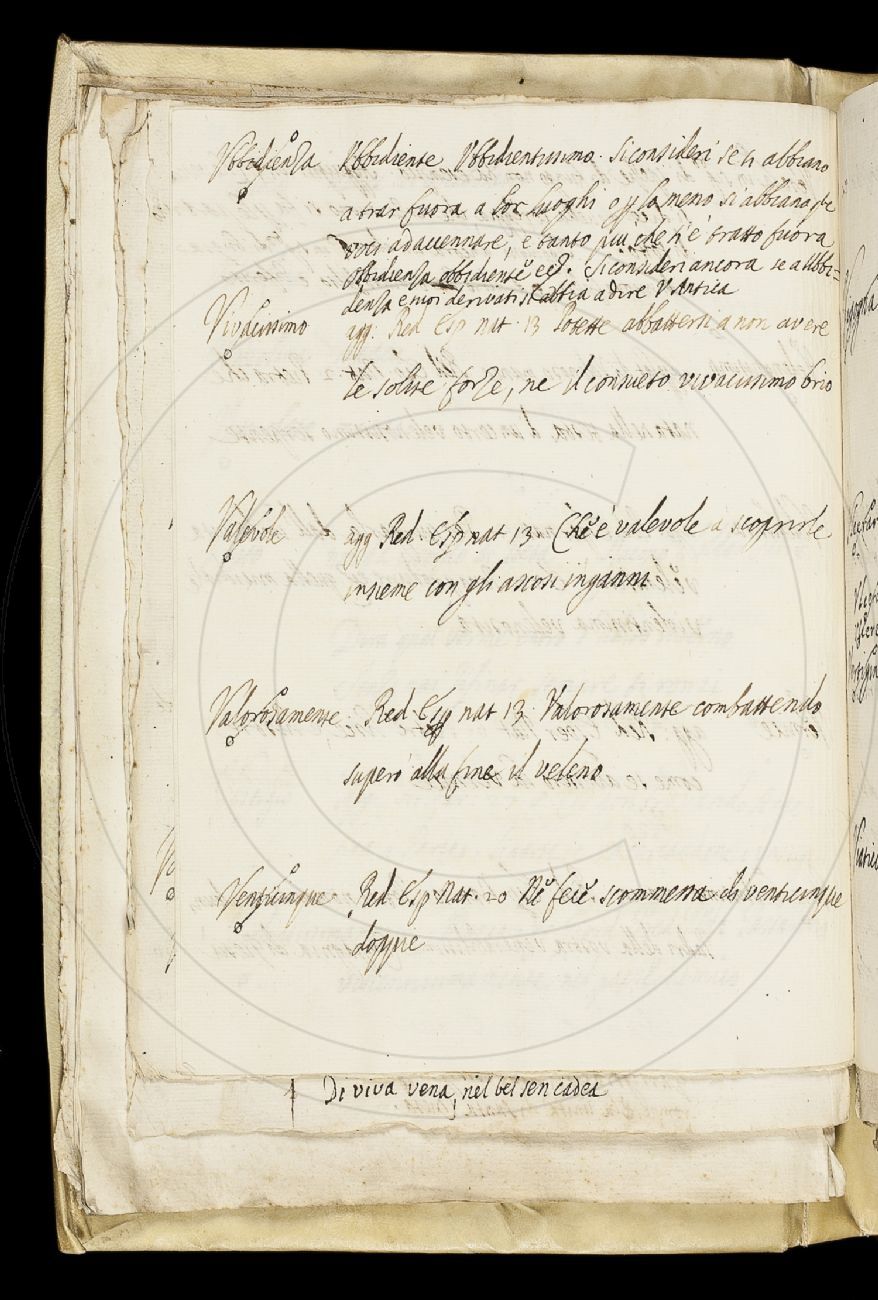 Vbbidienza Vbbidiente Vbbidientissimo. Si consideri se si abbiano
a trar fuora a lor luoghi o se si abbiano
voci ad accennare, e tanto più che si è tratto fuora
Obbidienza obbidiente ec. Si consideri ancora se a Ubbi=
denza e suoi derivati si abbia a dire V. Antica
Vivacissimo agg. Red Esp nat. 13 Potette abbattersi a non avere
le solite forze, ne il consueto vivacissimo brio
Valevole agg Red Esp nat 13 Che è valevole a scoprirle
insieme con gli ascosi inganni
Valorosamente. Red Esp nat 13. Valorosamente combattendo
superò alla fine il veleno
Venticinque. Red Esp Nat. 20 Ne fece scommessa di venticinque
doppie
Di viva vena, nel bel sen cadea